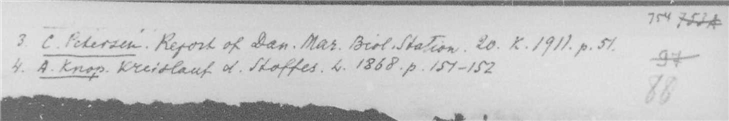 754 757A
3 C. Petersen. Report of Dan. Mar. Biol. Station. 20. K. 1911. p. 51.
97
4. A. Knop. Kreislauf d. Stoffes. L. 1868. p. 151-152
88